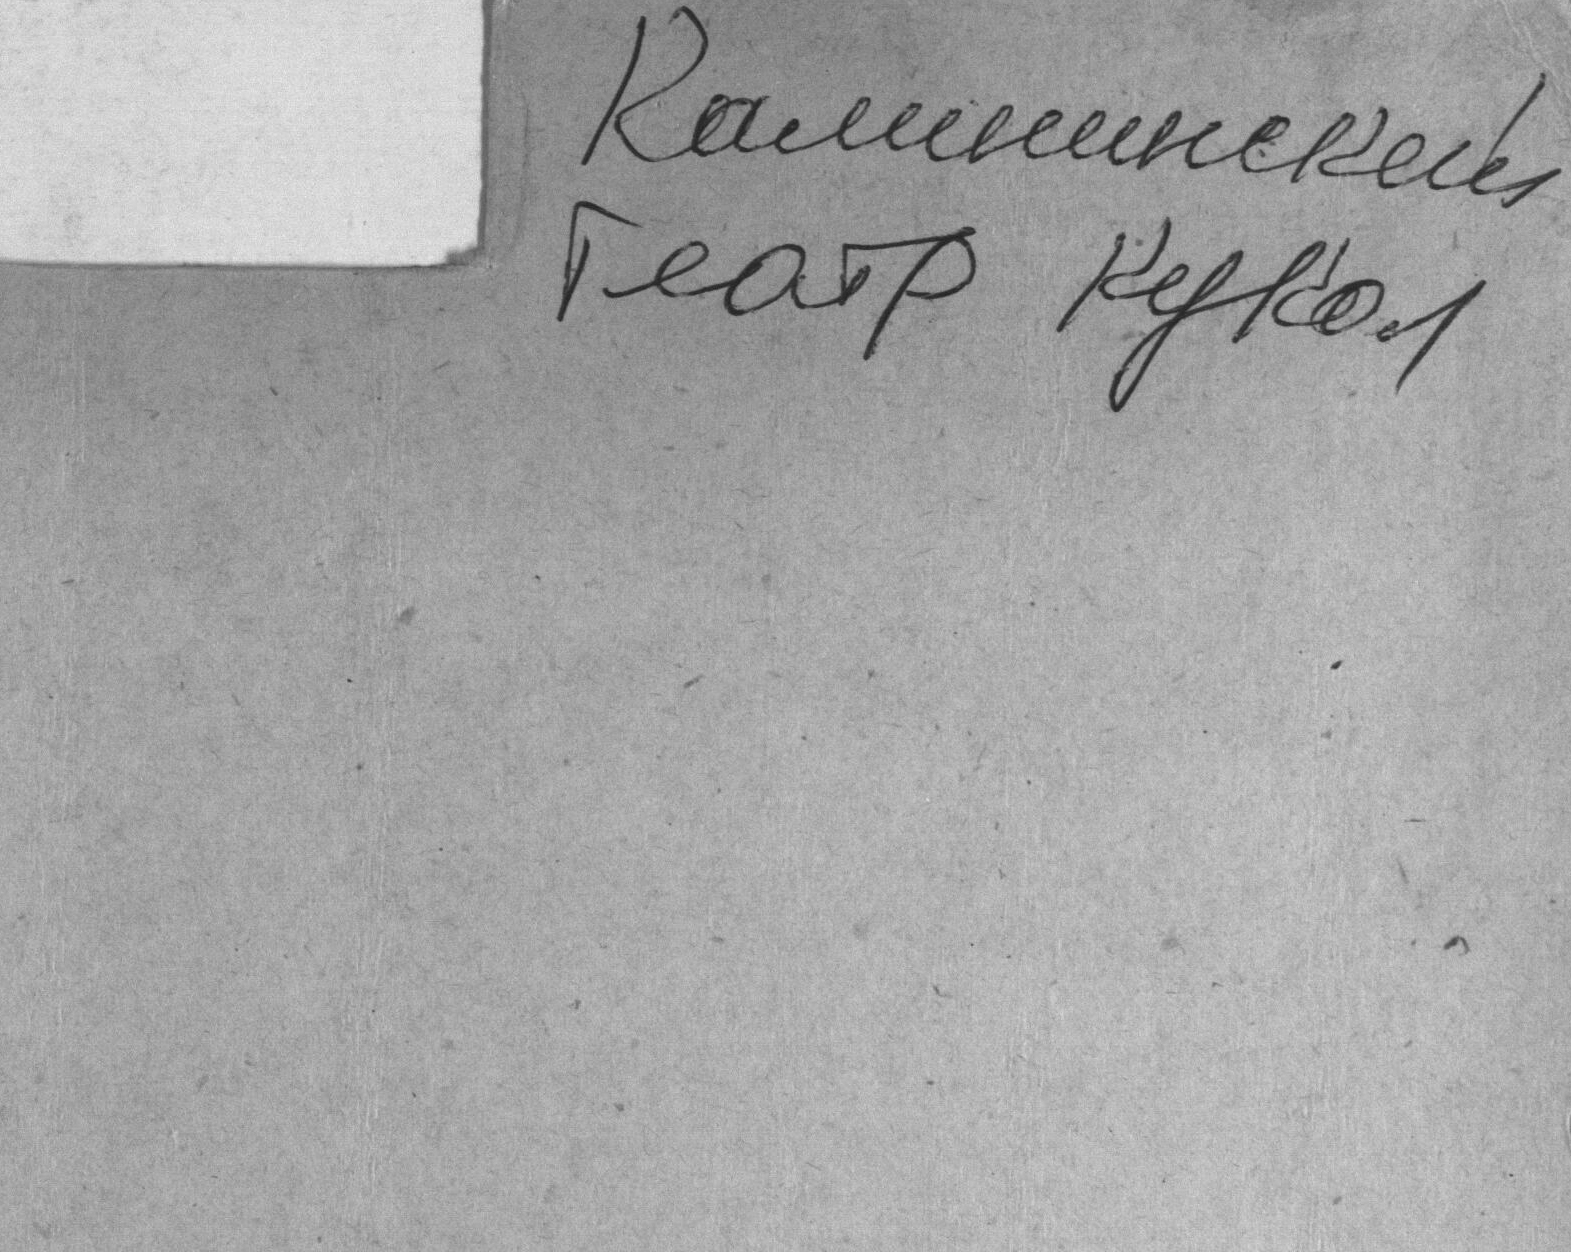 Калининский
Театр кукол